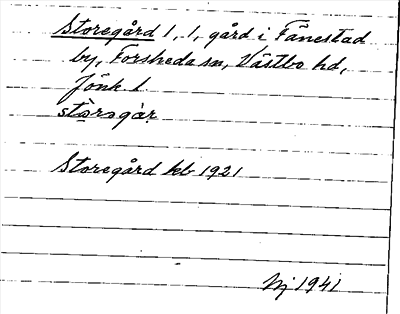 Storegård 1, 1, gård i Fånestad
by, Forsheda sn, Västbo hd,
Jönk l.
Storegård kb 1921
Nj 1941